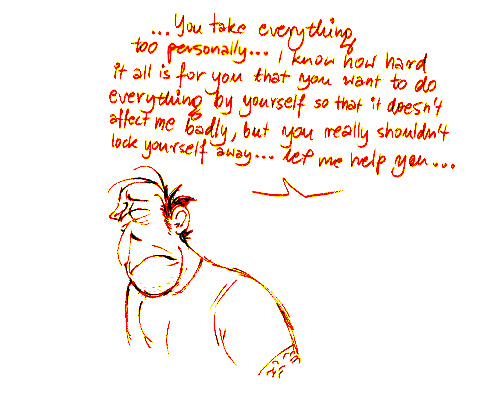 ...You take everything
too personally... I know how hard
it all is for you that you want to do
everything by yourself so that it doesn't
affect me badly, but you really shouldn't
lock yourself away... let me help you...